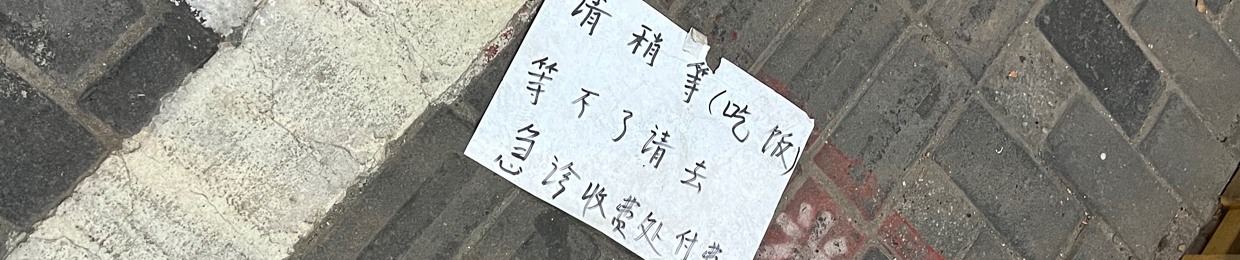 请稍等(吃饭)
等不了请去
急诊收费处付费